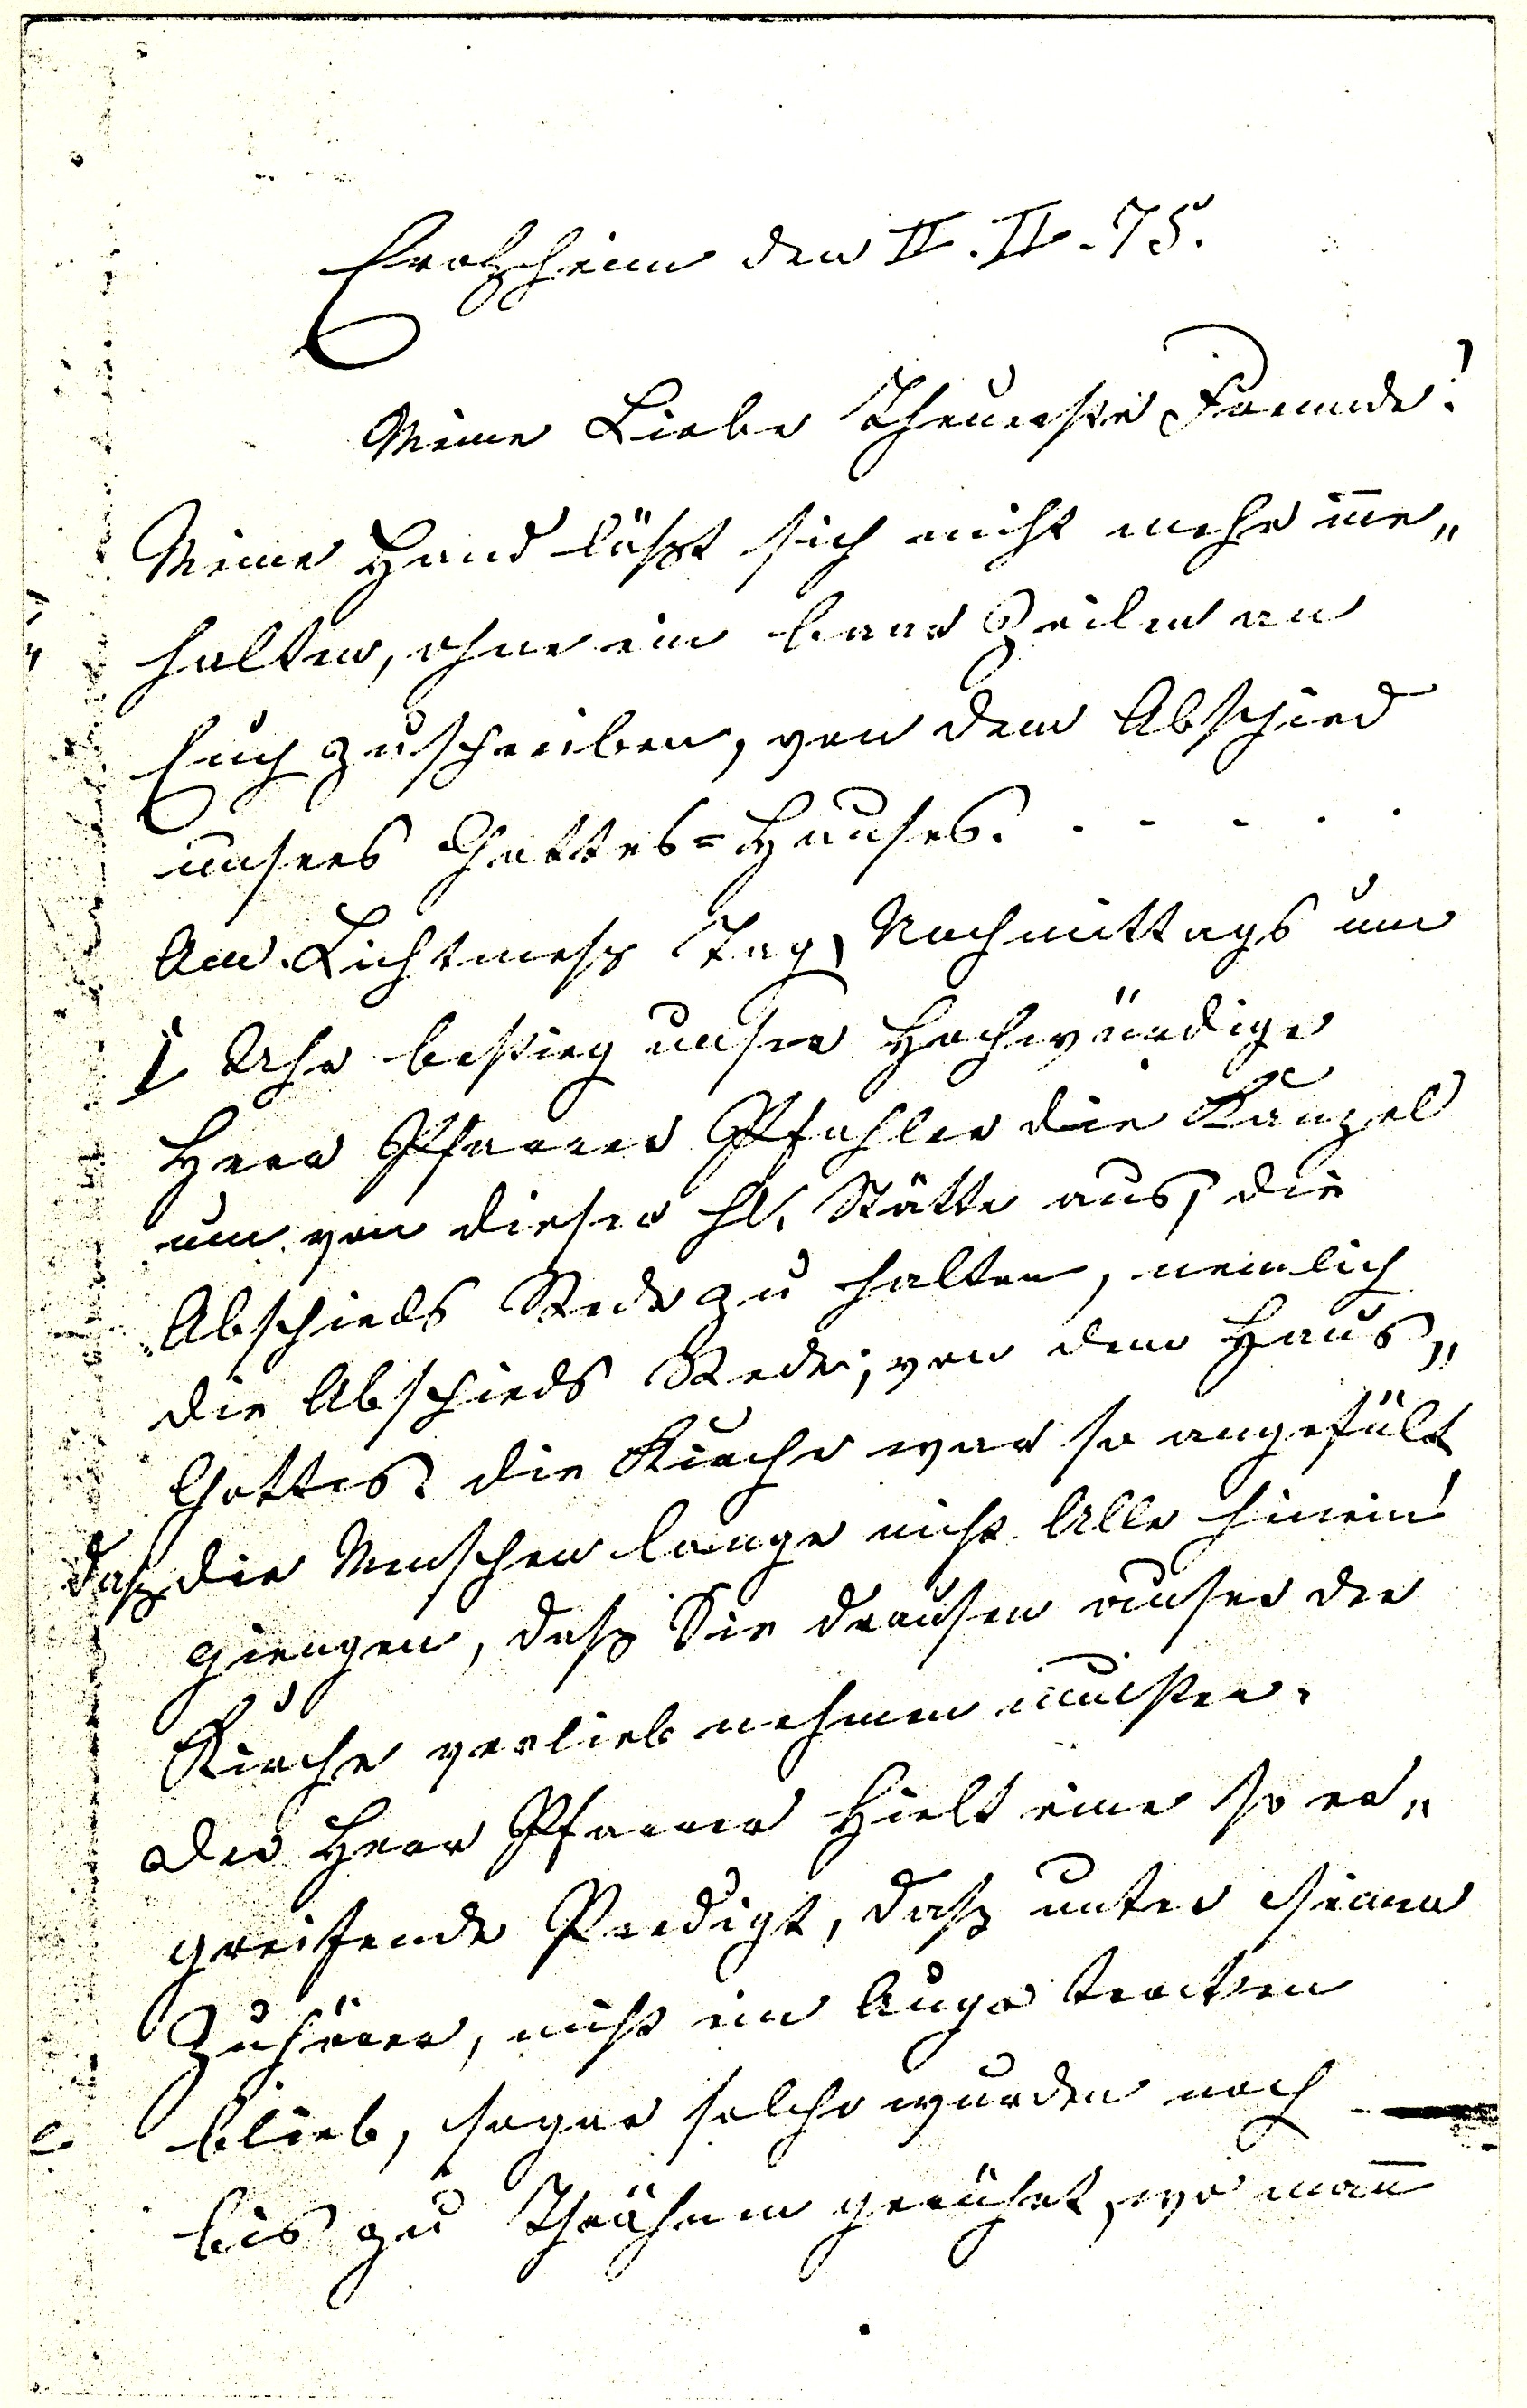 Erolzheim den II. II. 75.
Meine Liebe Theuerste Freunde!
Meine Hand läßt sich nicht mehr inne„
halten, ohne ein baar Zeilen an
Euch zuschreiben, von dem Abschied
unsers Gottes=Hauses. . - - . .
Am Lichtmeß Tag, Nachmittags um
1 Uhr bestieg unser Hochwürdige
Herr Pfarrer Pfahler die Kanzel
um von dieser hl. Stätte aus, die
Abschieds Rede zu halten, nemlich
die Abschieds Rede, von dem Haus„
Gottes. die Kirche war so angefült
daß die Menschen lange nicht Alle hinein
giengen, daß Sie drausen auser der
Kirche verlieb nehmen musten.
Der Herr Pfarrer Hielt eine so er„
greifende Predigt, daß unter seinen
Zuhörer, nicht ein Auge trocken
blieb, sogar solche wurden noch
bis zu Thrähnen gerührt, wo man̄